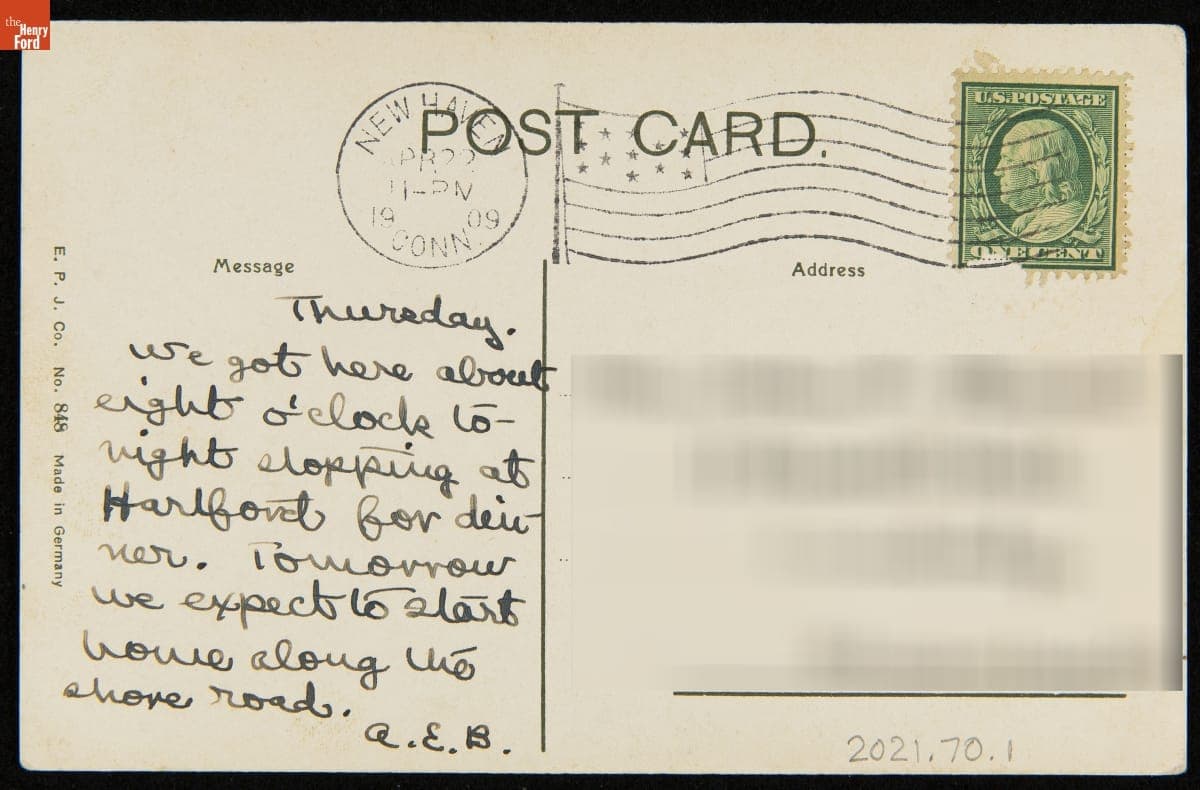 the
Henry
Ford
POST CARD.
NEW HAVEN
APR 22
11-PM
1909
CONN.
U.S. POSTAGE
ONE CENT
Message
Address
Thursday.
We got here about
eight o'clock to-
night stopping at
Hartford for din-
ner. Tomorrow
we expect to start
home along the
shore road.
A.E.B.
E. P. J. Co. No. 848 Made in Germany
2021.70.1